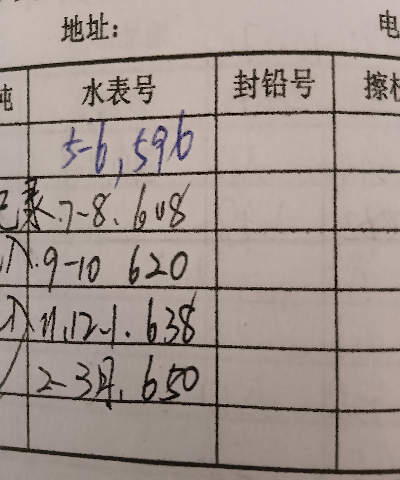 地址: 电
吨 水表号 封铅号 擦
5-6, 596
表.7-8. 608
9-10 620
11.12-1. 638
2-3月. 650